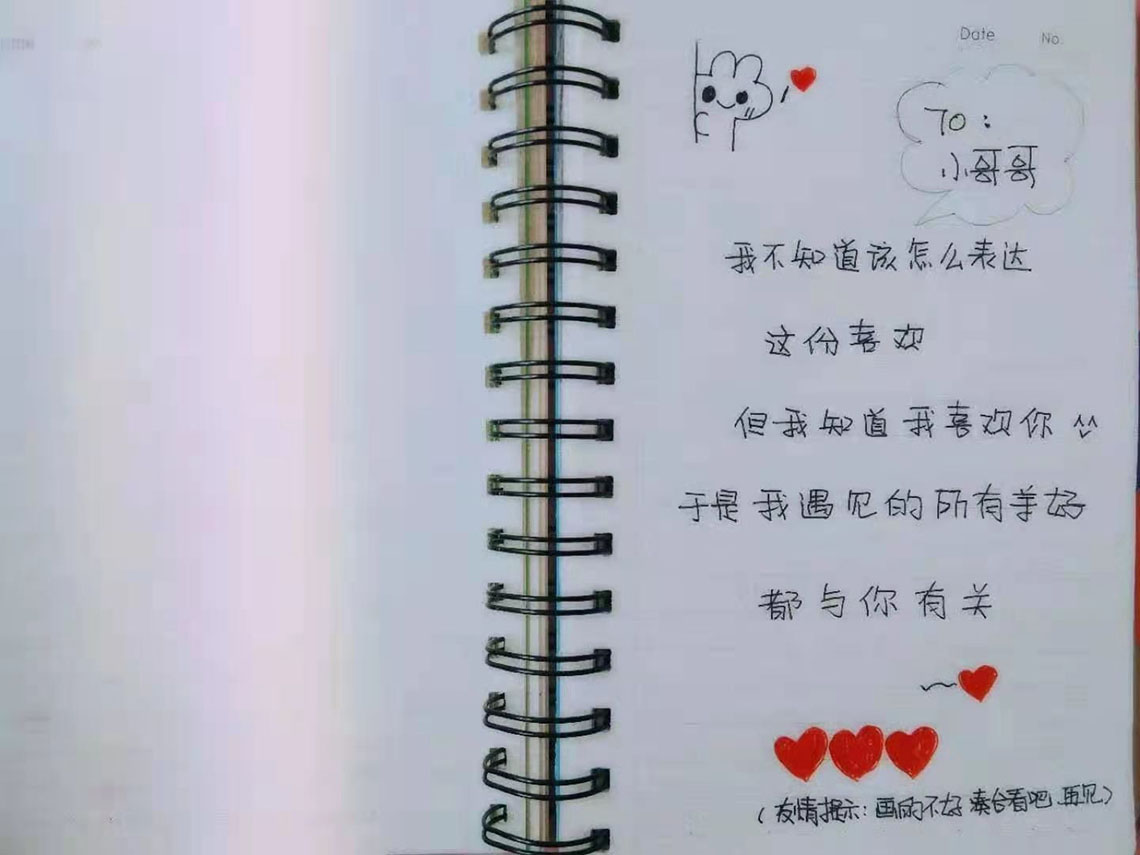 Date No
TO:
小哥哥
我不知道该怎么表达
这份喜欢
但我知道我喜欢你
于是我遇见的所有美好
都与你有关
(友情提示:画的不好 凑合看吧 再见)